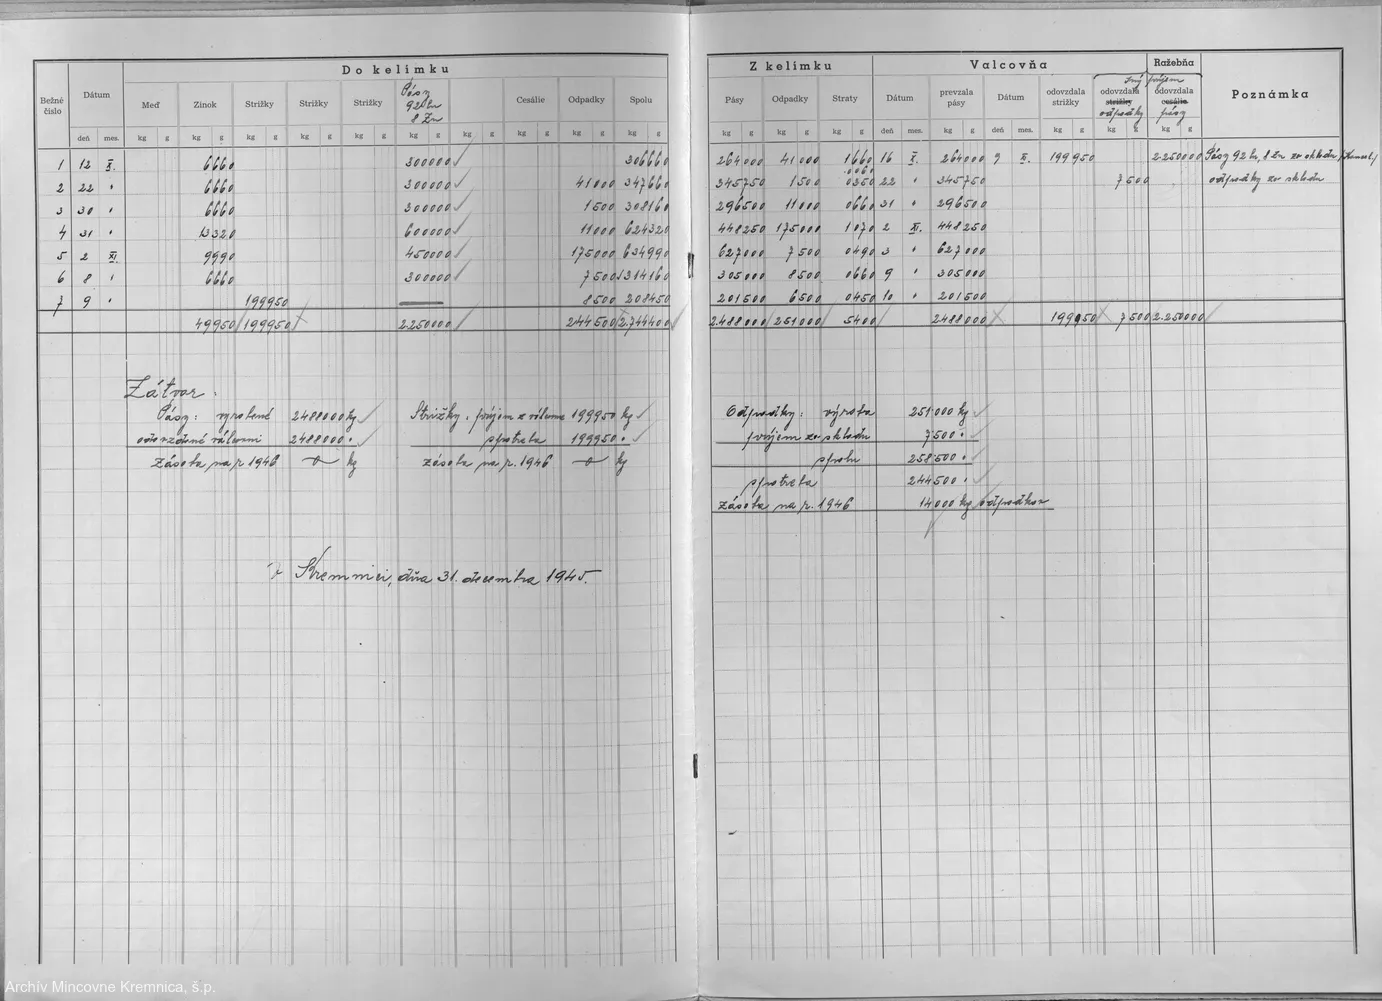 Do kelímku
Bežné číslo Dátum Meď Zinok Strižky Strižky Strižky Pásy 92 Cu 8 Zn Cesálie Odpadky Spolu
deň mes. kg g kg g kg g kg g kg g kg g kg g kg g kg g kg g
1 12 X. 6660 300000 306660
2 22 " 6660 300000 41000 347660
3 30 " 6660 300000 1500 308160
4 31 " 13320 600000 11000 624320
5 2 XI. 9990 450000 175000 634990
6 8 " 6660 300000 7500 314160
7 9 " 199950 8500 208450
49950 199950 2.250000 244500 2.744400
Zátvor:
Pásy: vyrobené 2488000 kg Strižky: príjem z válcovne 199950 kg
odovzdané válcovni 2488000 " spotreba 199950 "
zásoba na r. 1946 kg zásoba na r. 1946 kg
V Kremnici, dňa 31. decembra 1945.
Z kelímku Valcovňa Ražebňa Poznámka
Pásy Odpadky Straty Dátum prevzala pásy Dátum odovzdala strižky odovzdala strižky odpadky odovzdala cesálie pásy
Iný príjem
kg g kg g kg g deň mes. kg g deň mes. kg g kg g kg g
264000 41000 1660 16 X. 264000 9 XI. 199950 2.250000 Pásy 92 Cu, 8 Zn zo skladu
345750 1500 0350 22 " 345750 7500 odpadky zo skladu
296500 11000 0660 31 " 296500
448250 175000 1070 2 XI. 448250
627000 7500 0490 3 " 627000
305000 8500 0660 9 " 305000
201500 6500 0450 10 " 201500
2.488000 251000 5400 2488000 199950 7500 2.250000
Odpadky: výroba 251000 kg
príjem zo skladu 7500 "
spolu 258500 "
spotreba 244500 "
zásoba na r. 1946 14000 kg odpadkov
Archív Mincovne Kremnica, š.p.